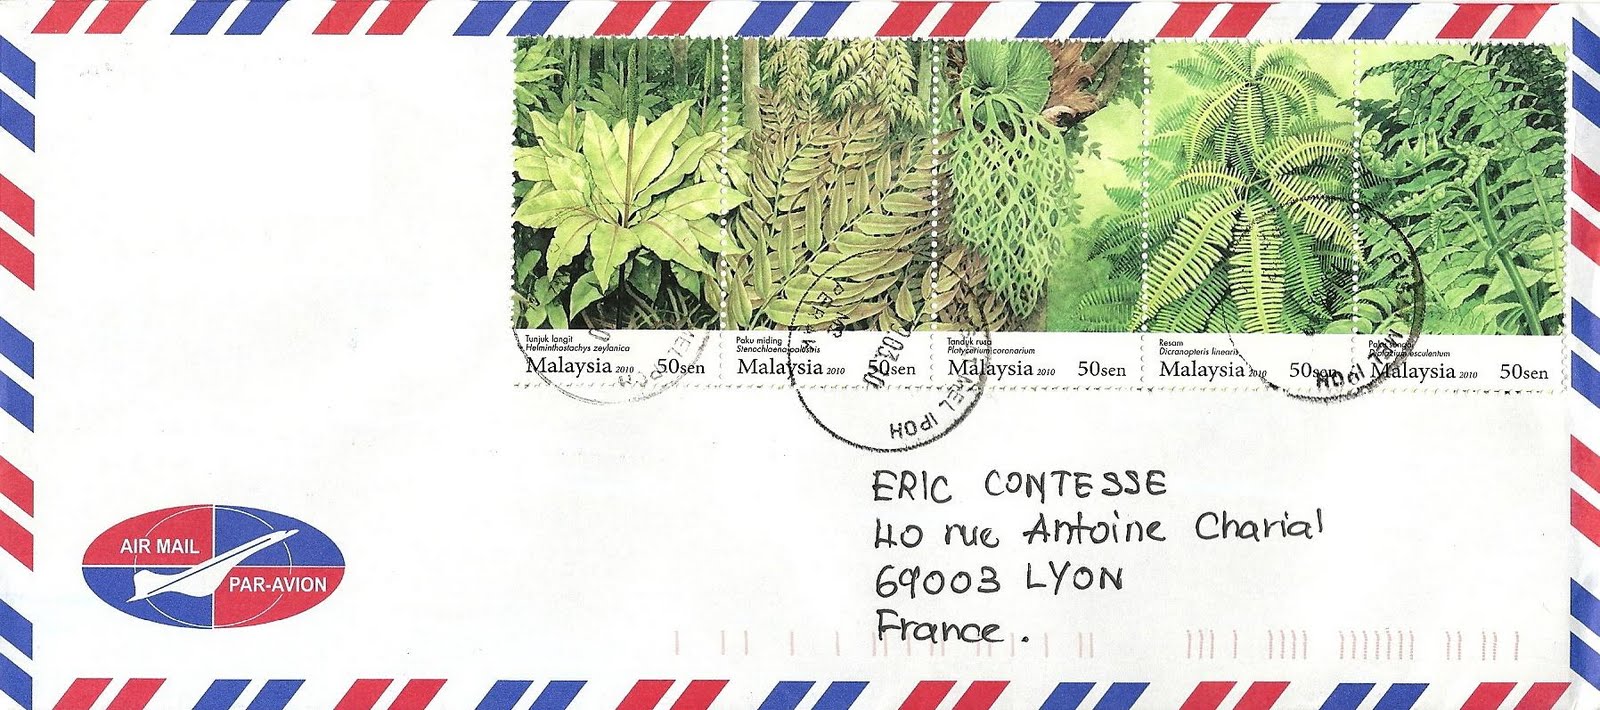 Tunjuk langit
Helminthostachys zeylanica
Malaysia 2010 50sen
Paku miding
Stenochlaena palustris
Malaysia 2010 50sen
Tanduk rusa
Platycerium coronarium
Malaysia 2010 50sen
Resam
Dicranopteris linearis
Malaysia 2010 50sen
Paku tanjong
Diplazium esculentum
Malaysia 2010 50sen
MEL IPOH
MEL IPOH
AIR MAIL
PAR-AVION
ERIC CONTESSE
40 rue Antoine Charial
69003 LYON
France.